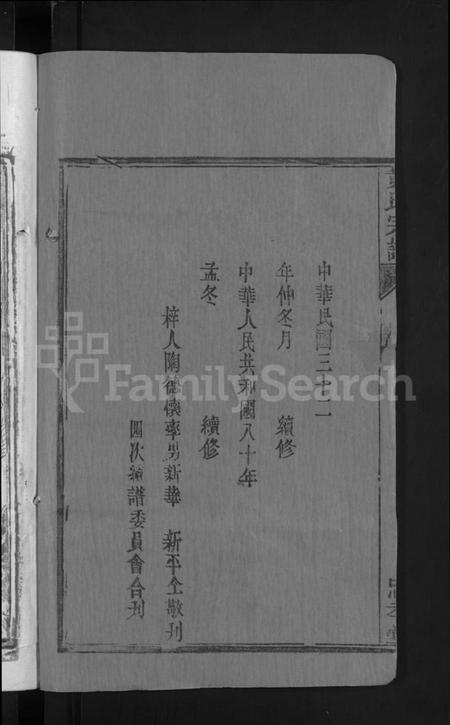 中華民國三十二
年仲冬月 續修
中華人民共和國八十年
孟冬 續修
梓人陶德懷率男新華 新平仝敬刊
四次續譜委員會合刊
氏宗譜
FamilySearch